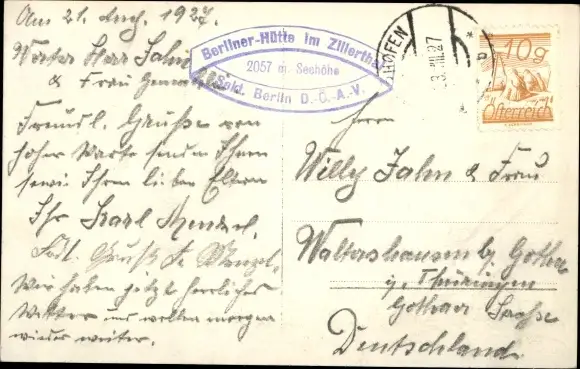 Am 21. Aug. 1927.
Werter Herr Jahn
& Frau
Freundl. Grüsse von
hoher Warte senden Ihnen
sowie Ihren lieben Eltern
Ihr Karl Menzel.
Gruß Fr. Menzel.
Wir haben jetzt herrliches
Wetter und wollen morgen
wieder weiter.
Berliner-Hütte im Zillertha
2057 m. Seehöhe
Sekt. Berlin D.-Ö.-A.-V.
HOFEN
VIII.27
10g
Österreich
Herrn
Willy Jahn & Frau
Waltershausen b/ Gotha
i/ Thüringen
Gothaer Straße
Deutschland.